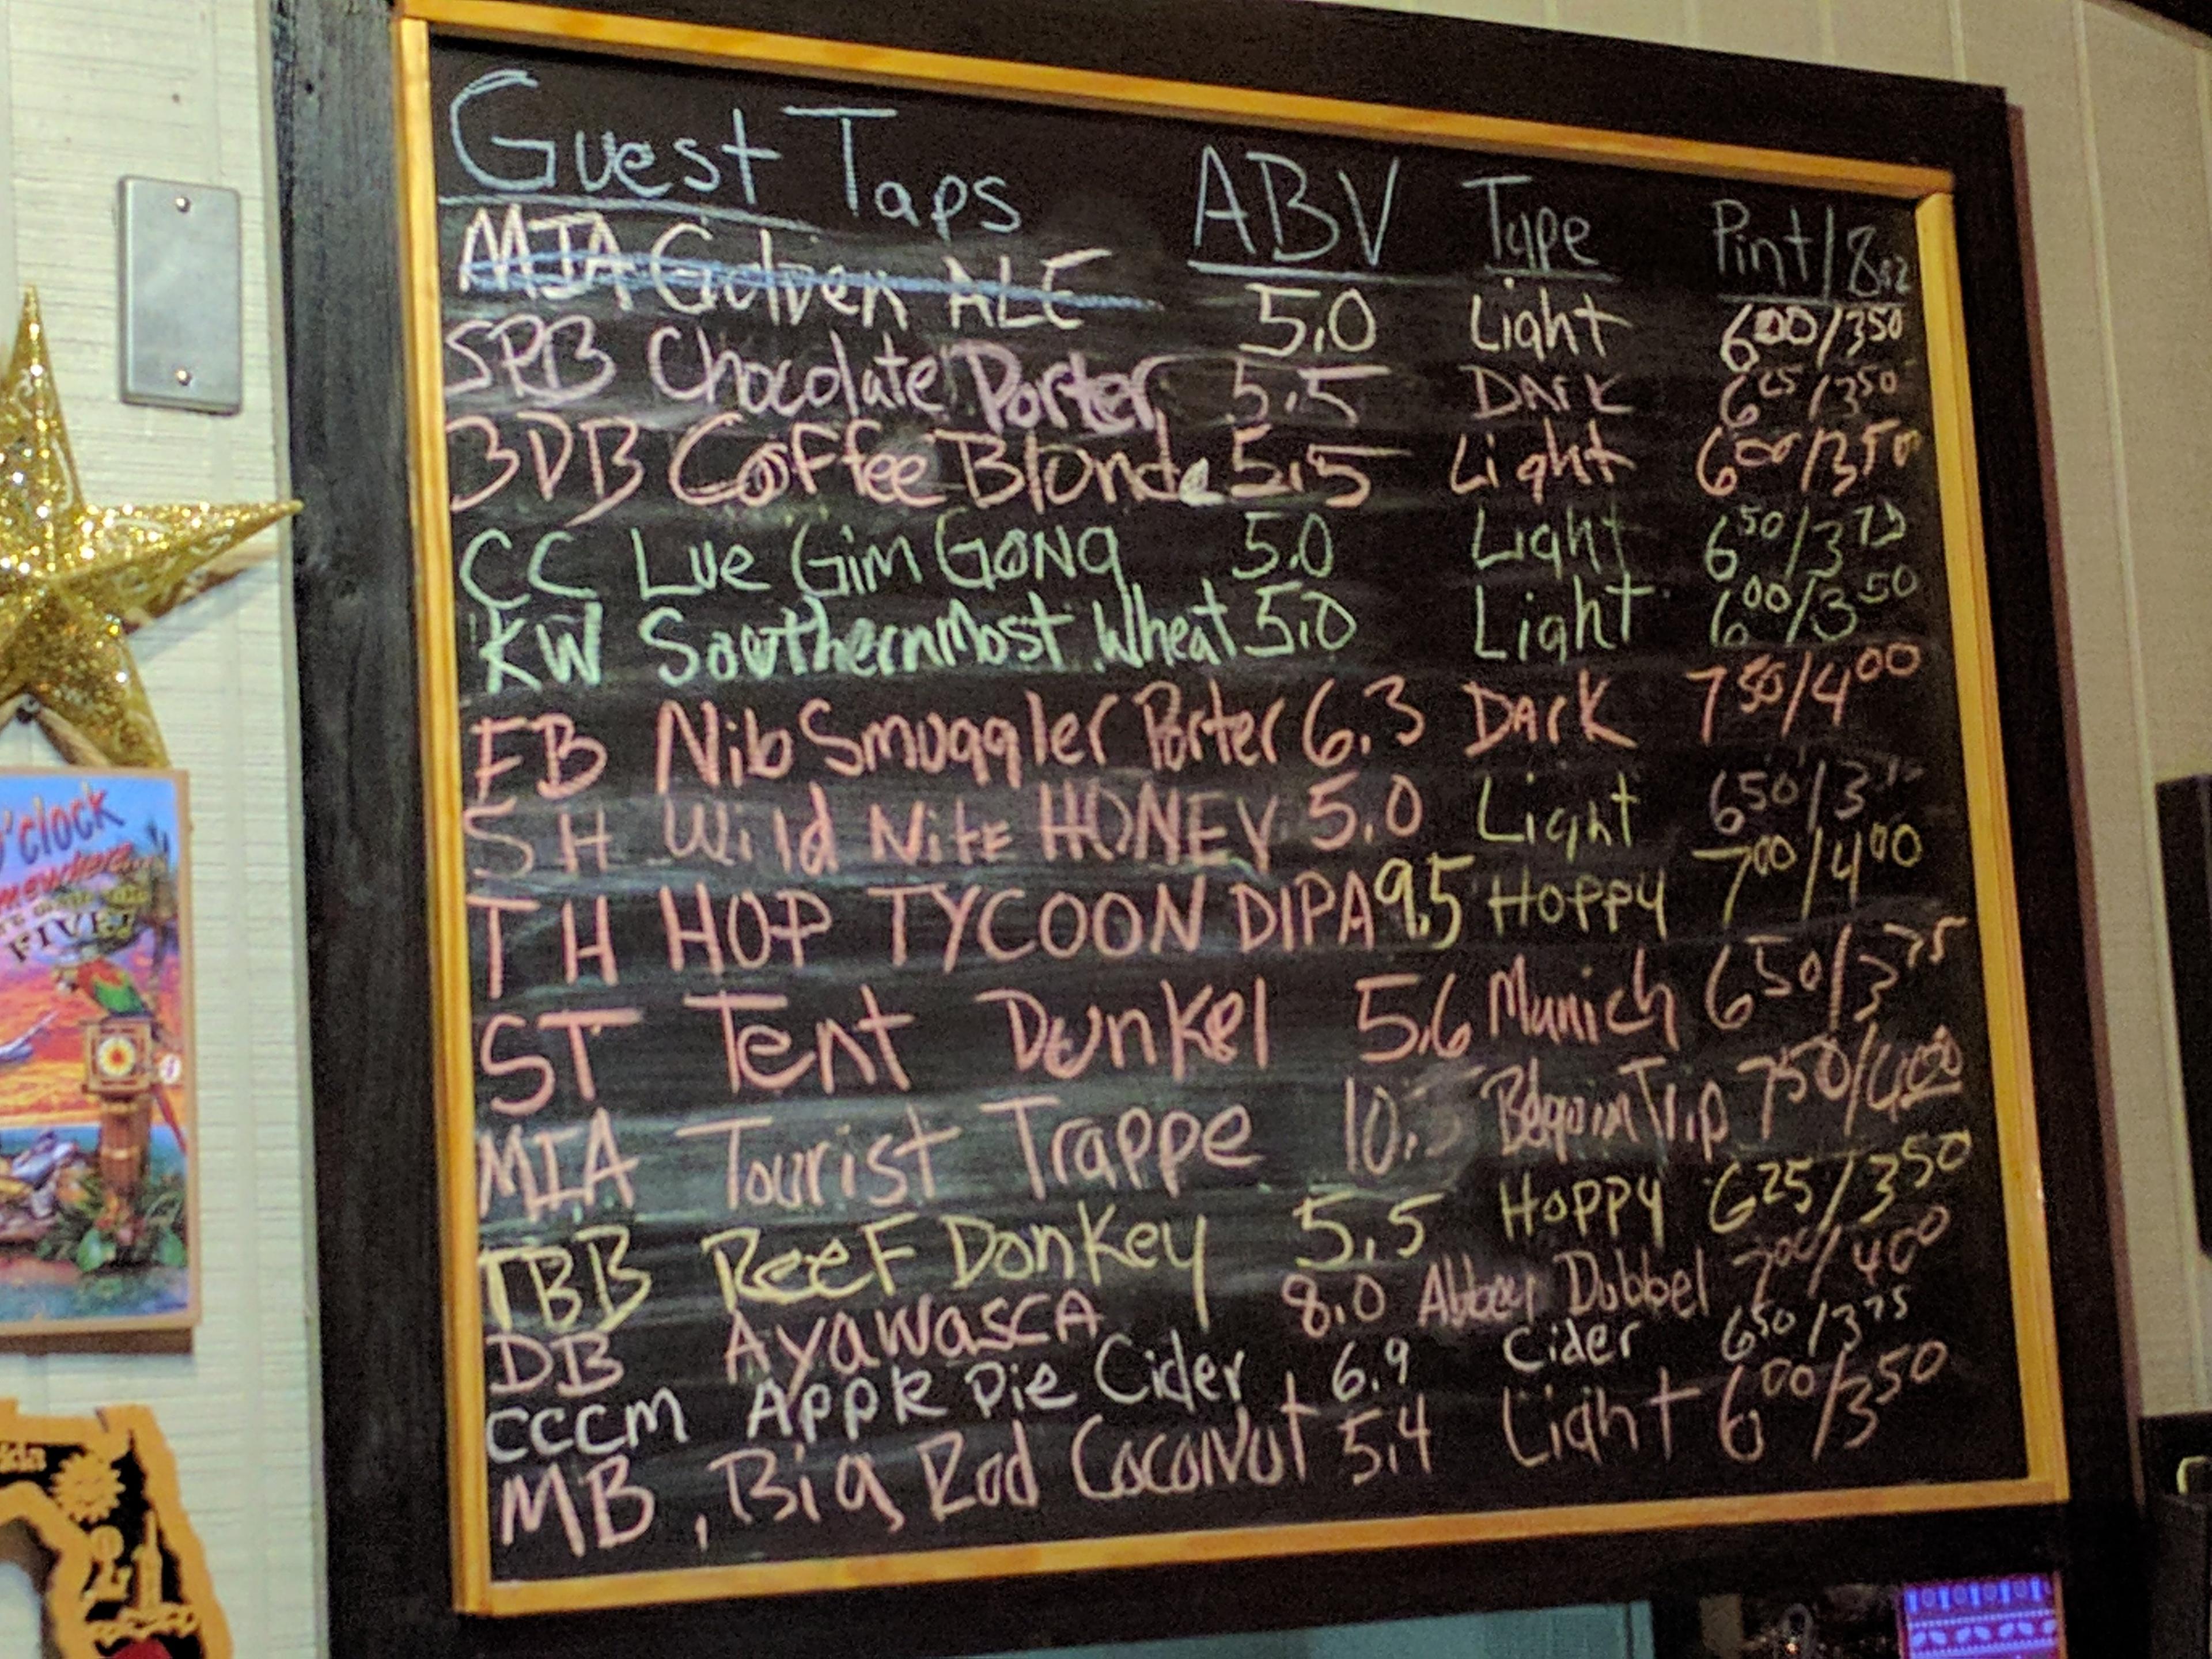 Guest Taps ABV Type Pint/8oz
MIA Golden ALE 5.0 Light 600/350
SPB Chocolate Porter 5.5 DARK 625/350
3DB Coffee Blonde 5.5 Light 600/350
CC Lue Gim Gong 5.0 Light 650/375
KW SouthernMost Wheat 5.0 Light 600/350
FB Nib Smuggler Porter 6.3 DARK 750/400
SH Wild Nite HONEY 5.0 Light 650/3
TH HOP TYCOON DIPA 9.5 Hoppy 700/400
ST Tent Dunkel 5.6 Munich 650/375
MIA Tourist Trappe 10. Trip 750/400
TBB Reef Donkey 5.5 Hoppy 625/350
DB AyawascA 8.0 Abbey Dubbel 700/400
CCCM Apple Pie Cider 6.9 Cider 650/375
MB, Big Rod Coconut 5.4 Light 600/350
o'clock
FIVE!